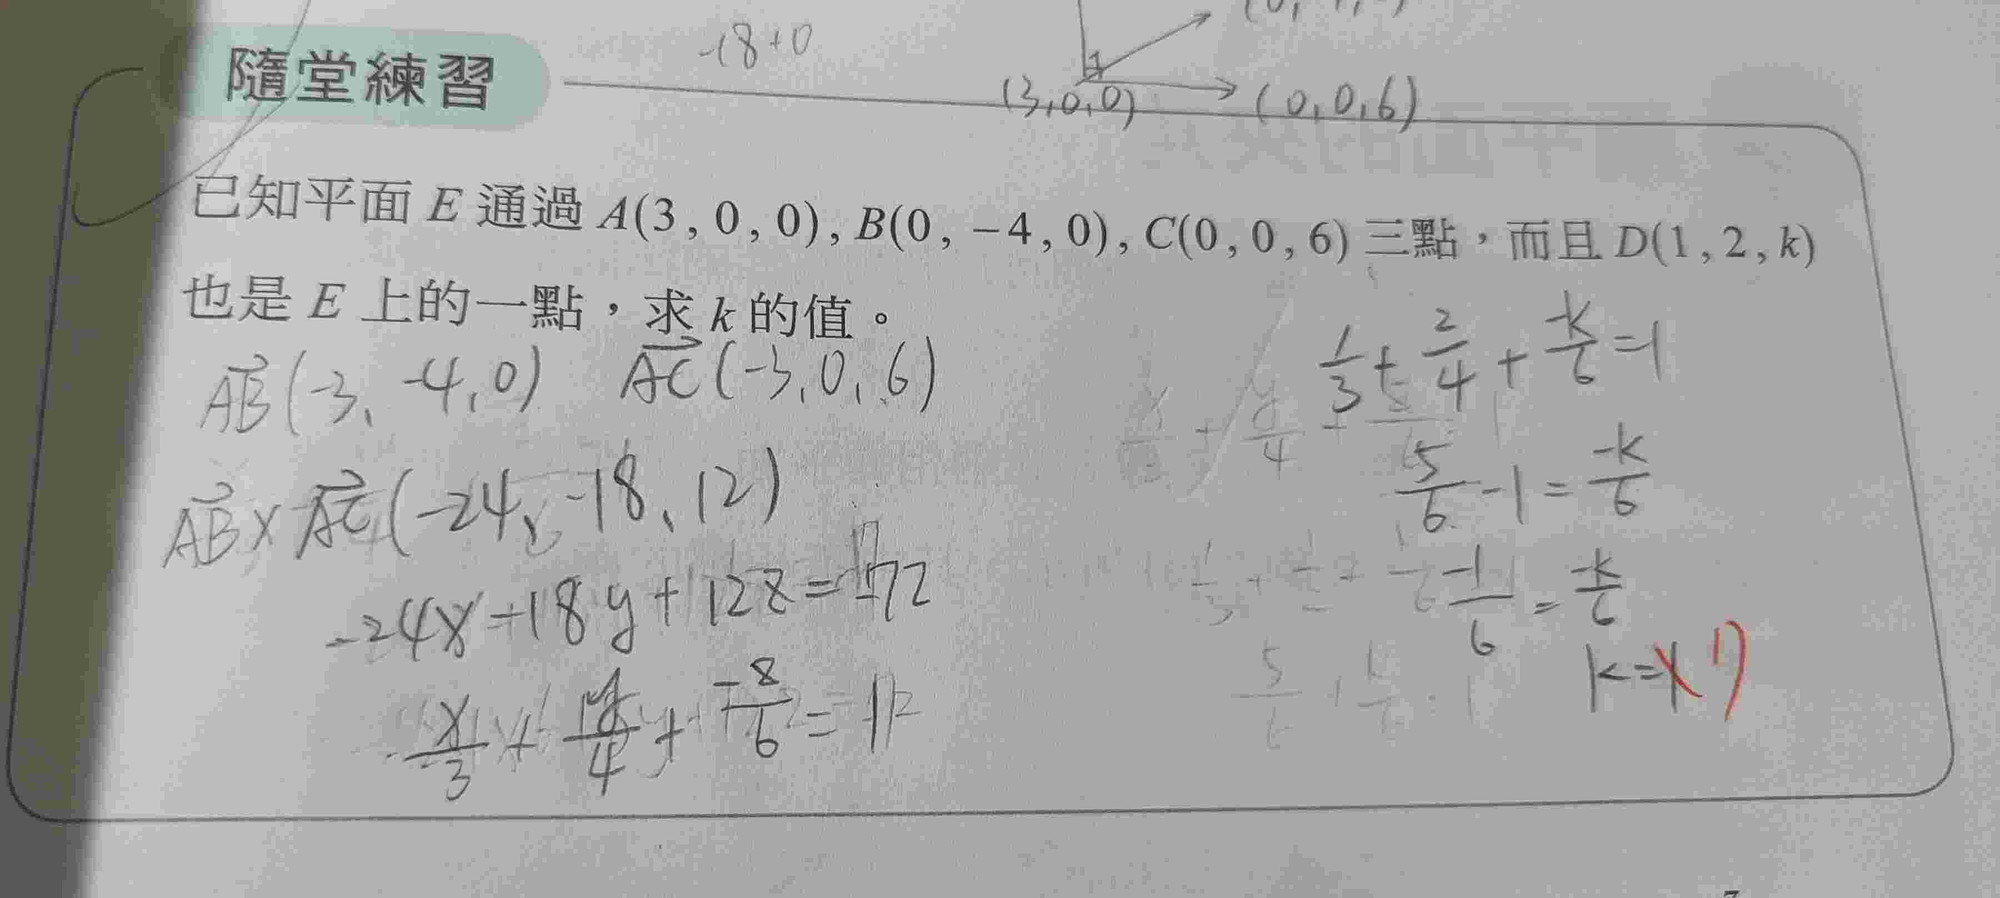 -18+0
(3,0,0)
(0,0,6)
隨堂練習
已知平面 E 通過 A(3, 0, 0), B(0, -4, 0), C(0, 0, 6) 三點，而且 D(1, 2, k)
也是 E 上的一點，求 k 的值。
AB(-3, -4, 0) AC(-3, 0, 6)
AB×AC(-24, -18, 12)
-24x-18y+12z=-72
1/3+2/4+-k/6=1
5/6-1=-k/6
-1/6=-k/6
k=